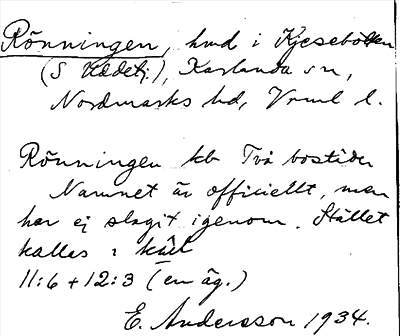 Rönningen, hmd i Kjesebotten
(S Uddetj:), Karlanda sn,
Nordmarks hd, Vrml l.
Rönningen kb Två bostäder
Namnet är officiellt, men
har ej slagit igenom. Stället
kallas :
11:6 + 12:3 (en äg.)
E. Andersson 1934.